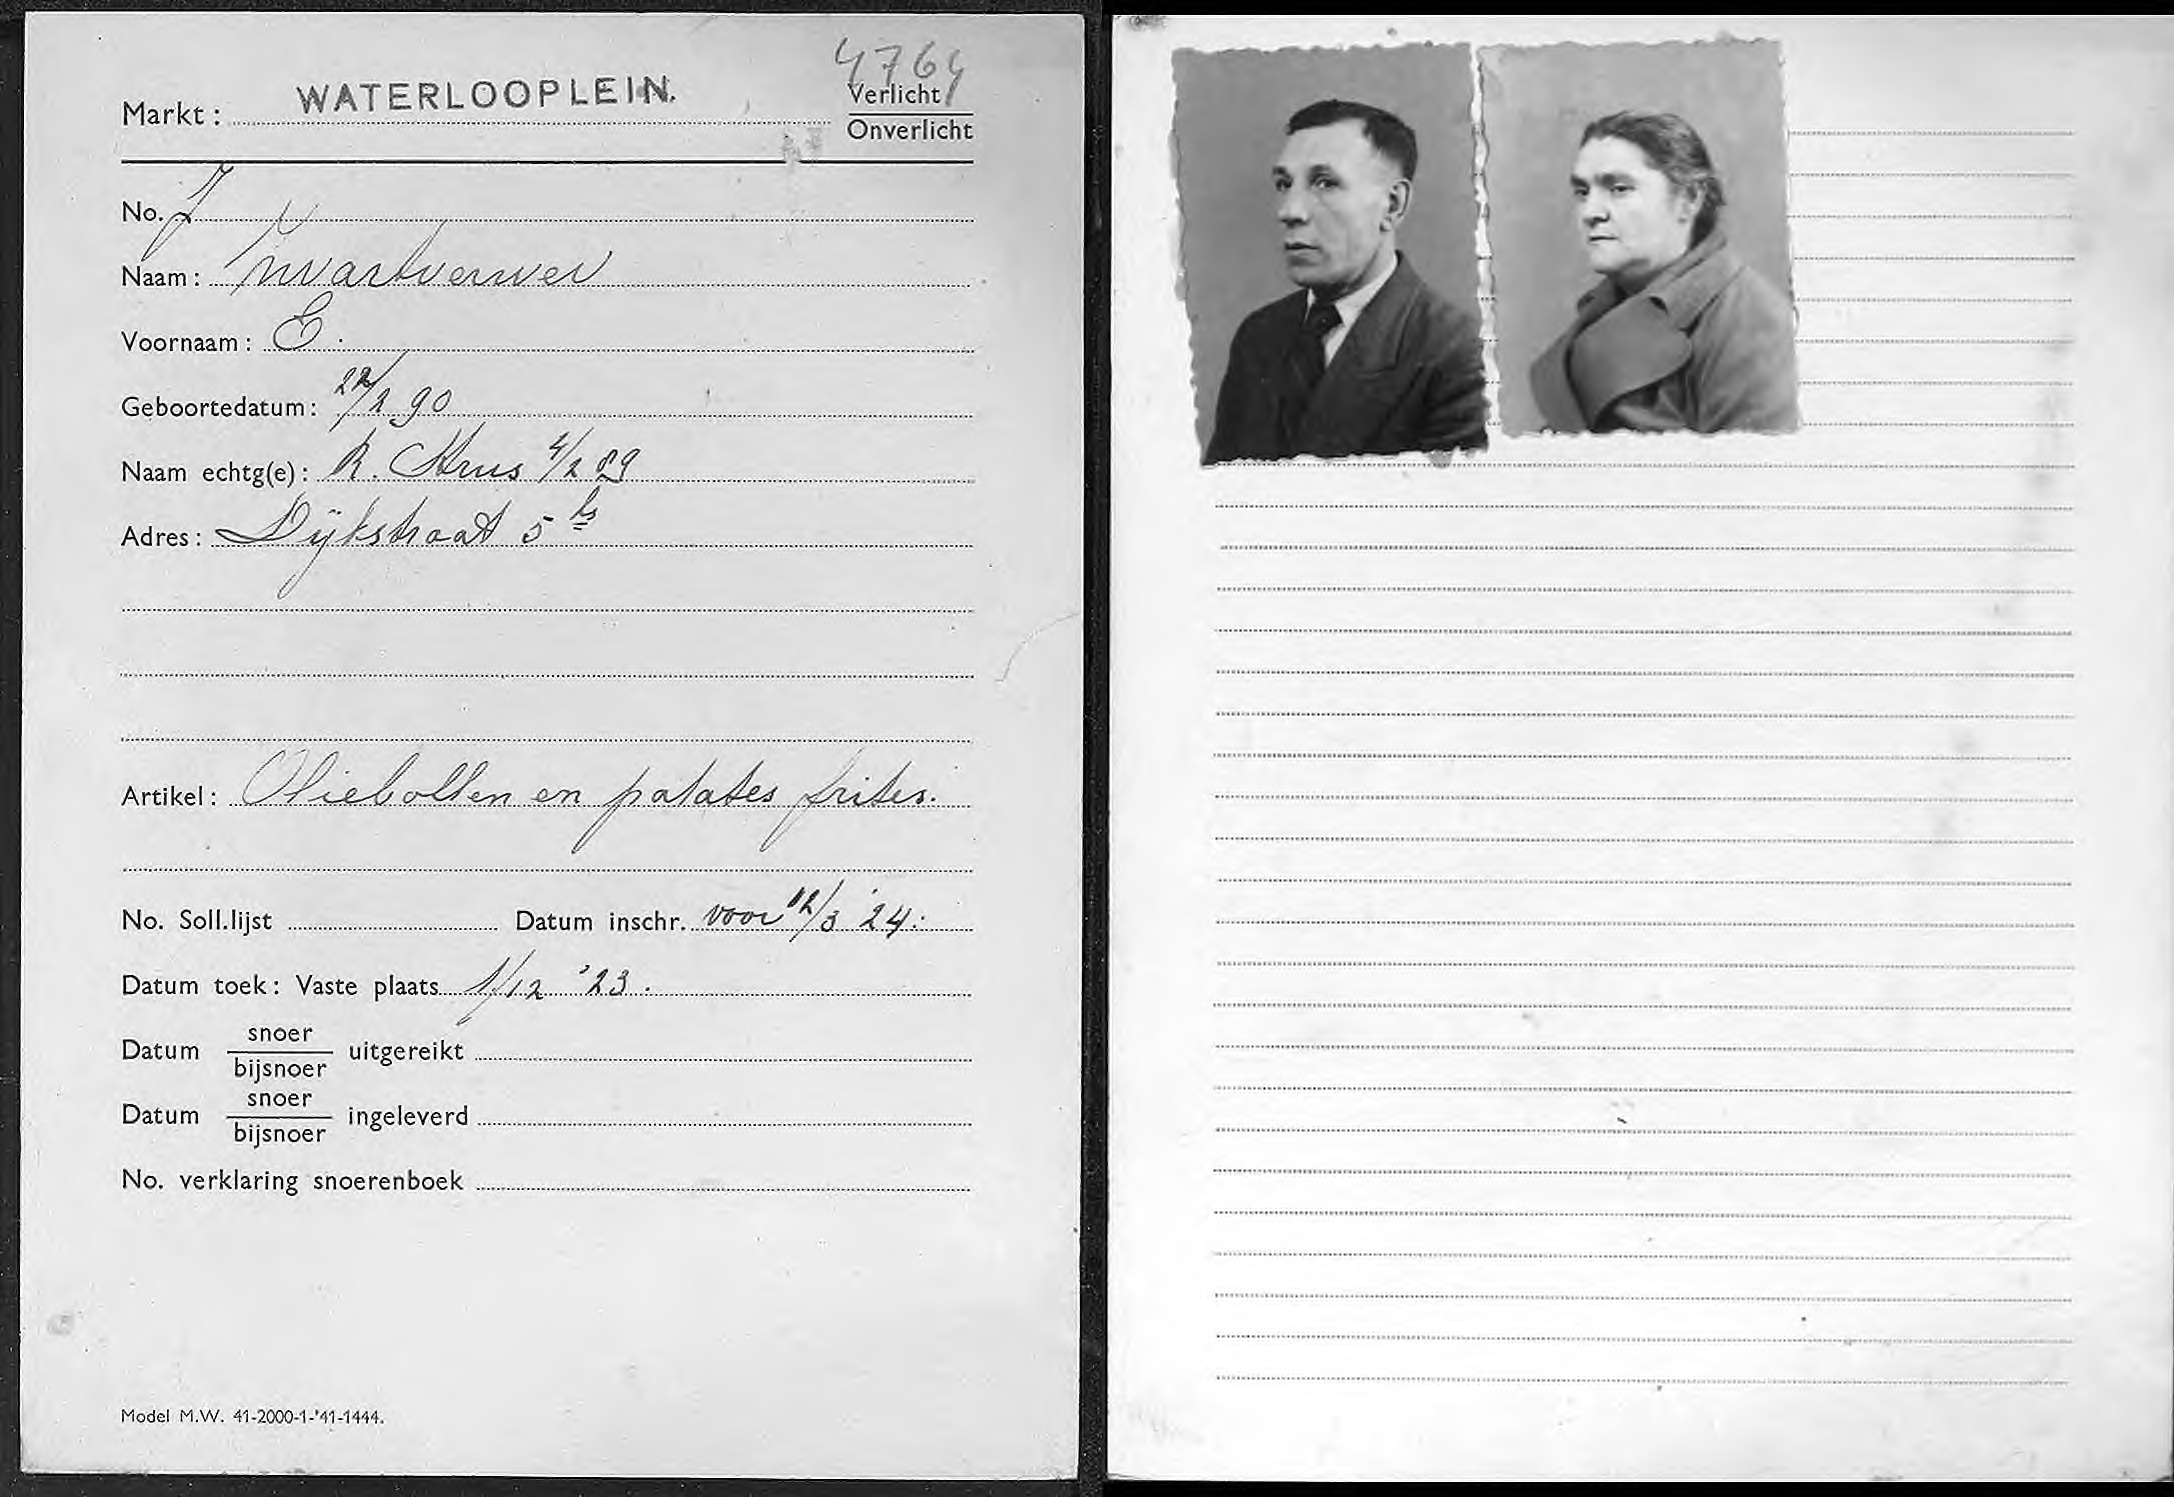 4764
Markt: WATERLOOPLEIN.
Verlicht
Onverlicht
No. J
Naam: Zwartverwer
Voornaam: E.
Geboortedatum: 22/2 90
Naam echtg(e): R. Krus 4/2 89
Adres: Dijkstraat 5 hs
Artikel: Oliebollen en patates frites.
No. Soll.lijst Datum inschr. voor 12/3 '24.
Datum toek: Vaste plaats 1/12 '23.
Datum snoer/bijsnoer uitgereikt
Datum snoer/bijsnoer ingeleverd
No. verklaring snoerenboek
Model M.W. 41-2000-1-'41-1444.